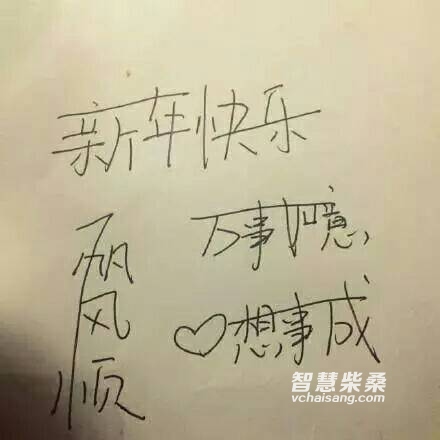 新年快乐
一帆风顺
万事如意
♡想事成
智慧柴桑
vchaisang.com